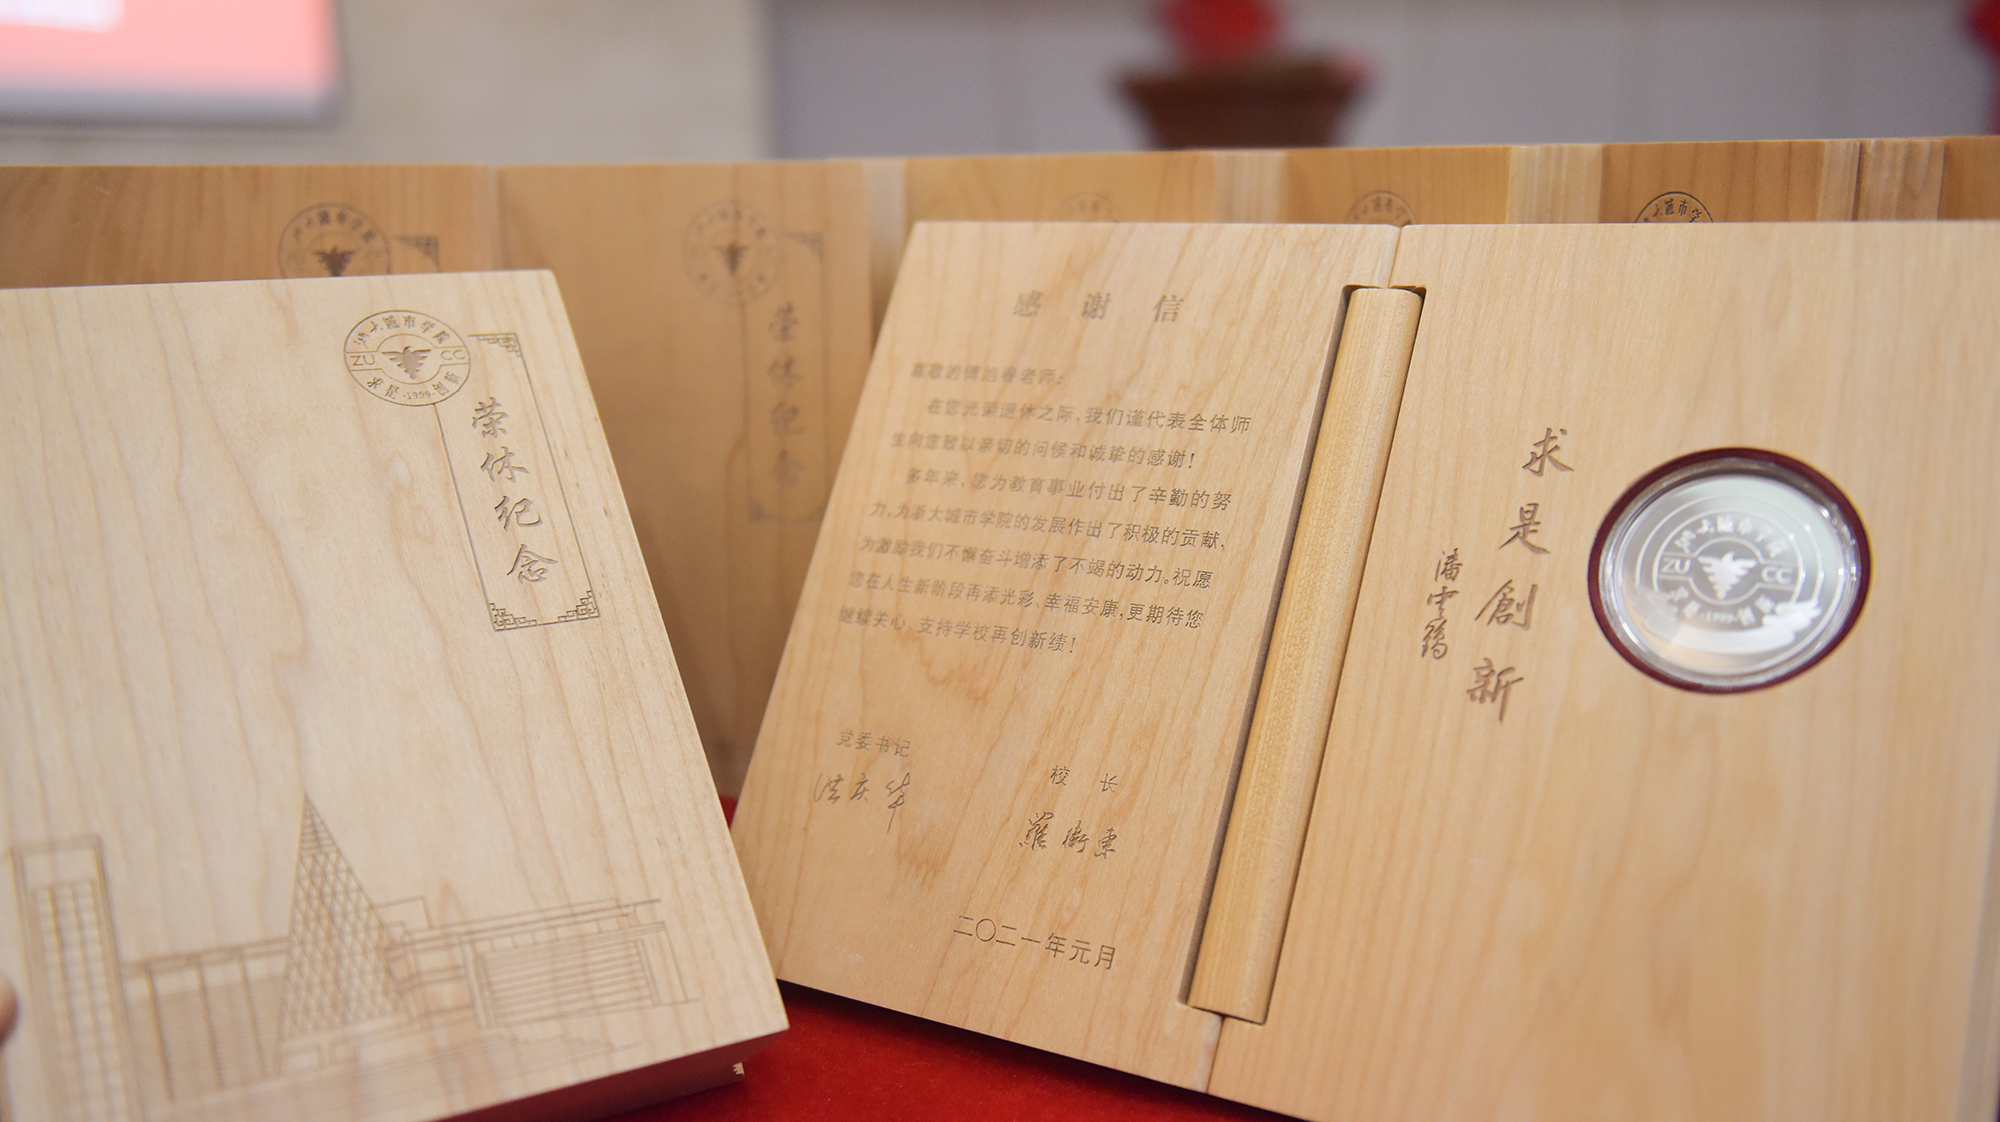 浙大城市学院
ZU CC
求是 创新
-1999-
荣休纪念
荣休纪念
感谢信
老师:
在您光荣退休之际,我们谨代表全体师
生向您致以亲切的问候和诚挚的感谢!
多年来,您为教育事业付出了辛勤的努
力,为浙大城市学院的发展作出了积极的贡献,
为激励我们不懈奋斗增添了不竭的动力。祝愿
您在人生新阶段再添光彩、幸福安康,更期待您
继续关心、支持学校再创新绩!
党委书记
洪庆华
校 长
羅衛東
二〇二一年元月
求是創新
潘云鹤
浙大城市学院
ZU CC
-1999-